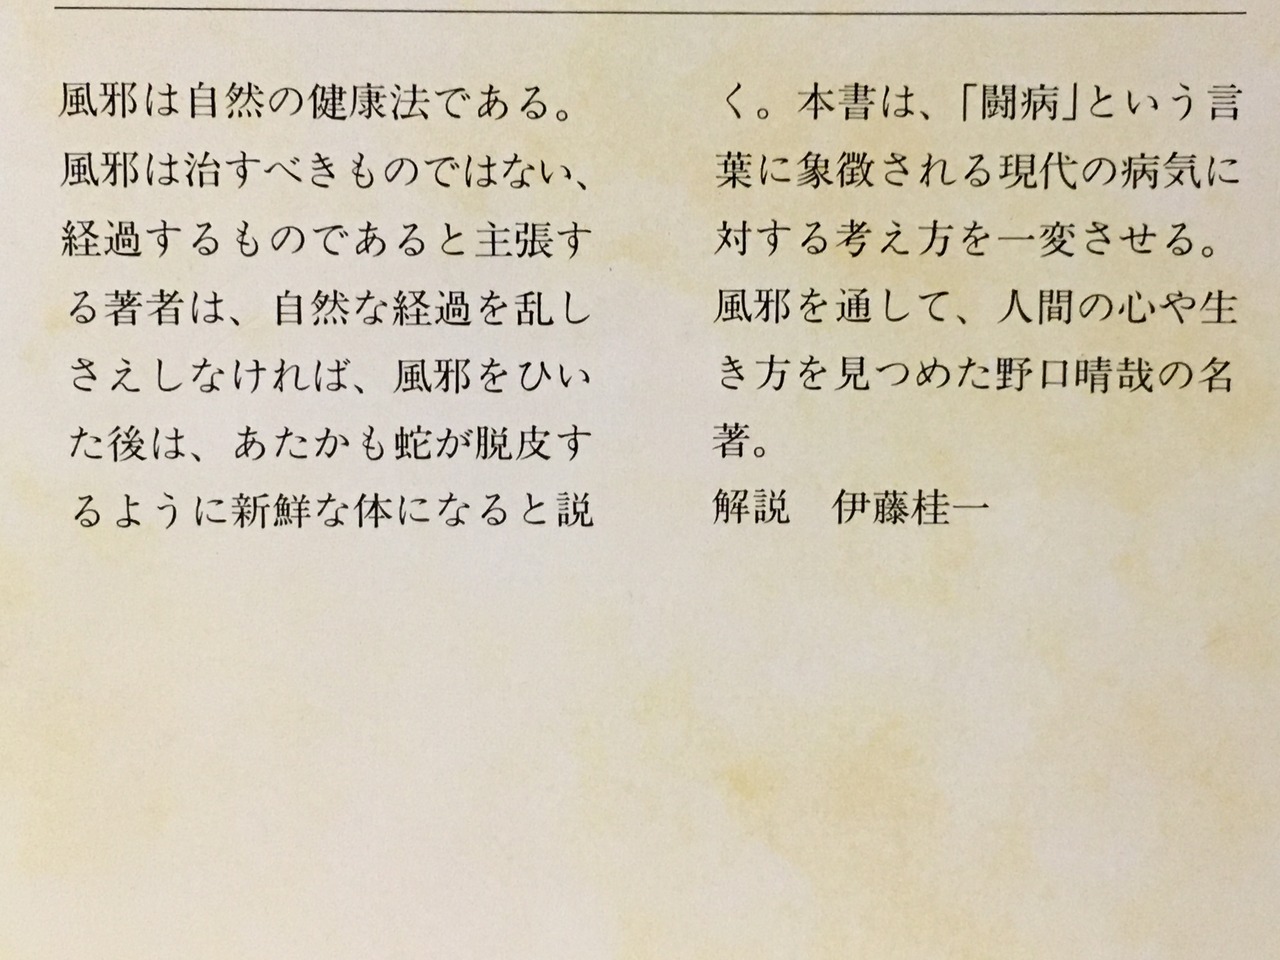 風邪は自然の健康法である。
風邪は治すべきものではない、
経過するものであると主張す
る著者は、自然な経過を乱し
さえしなければ、風邪をひい
た後は、あたかも蛇が脱皮す
るように新鮮な体になると説
く。本書は、「闘病」という言
葉に象徴される現代の病気に
対する考え方を一変させる。
風邪を通して、人間の心や生
き方を見つめた野口晴哉の名
著。
解説　伊藤桂一